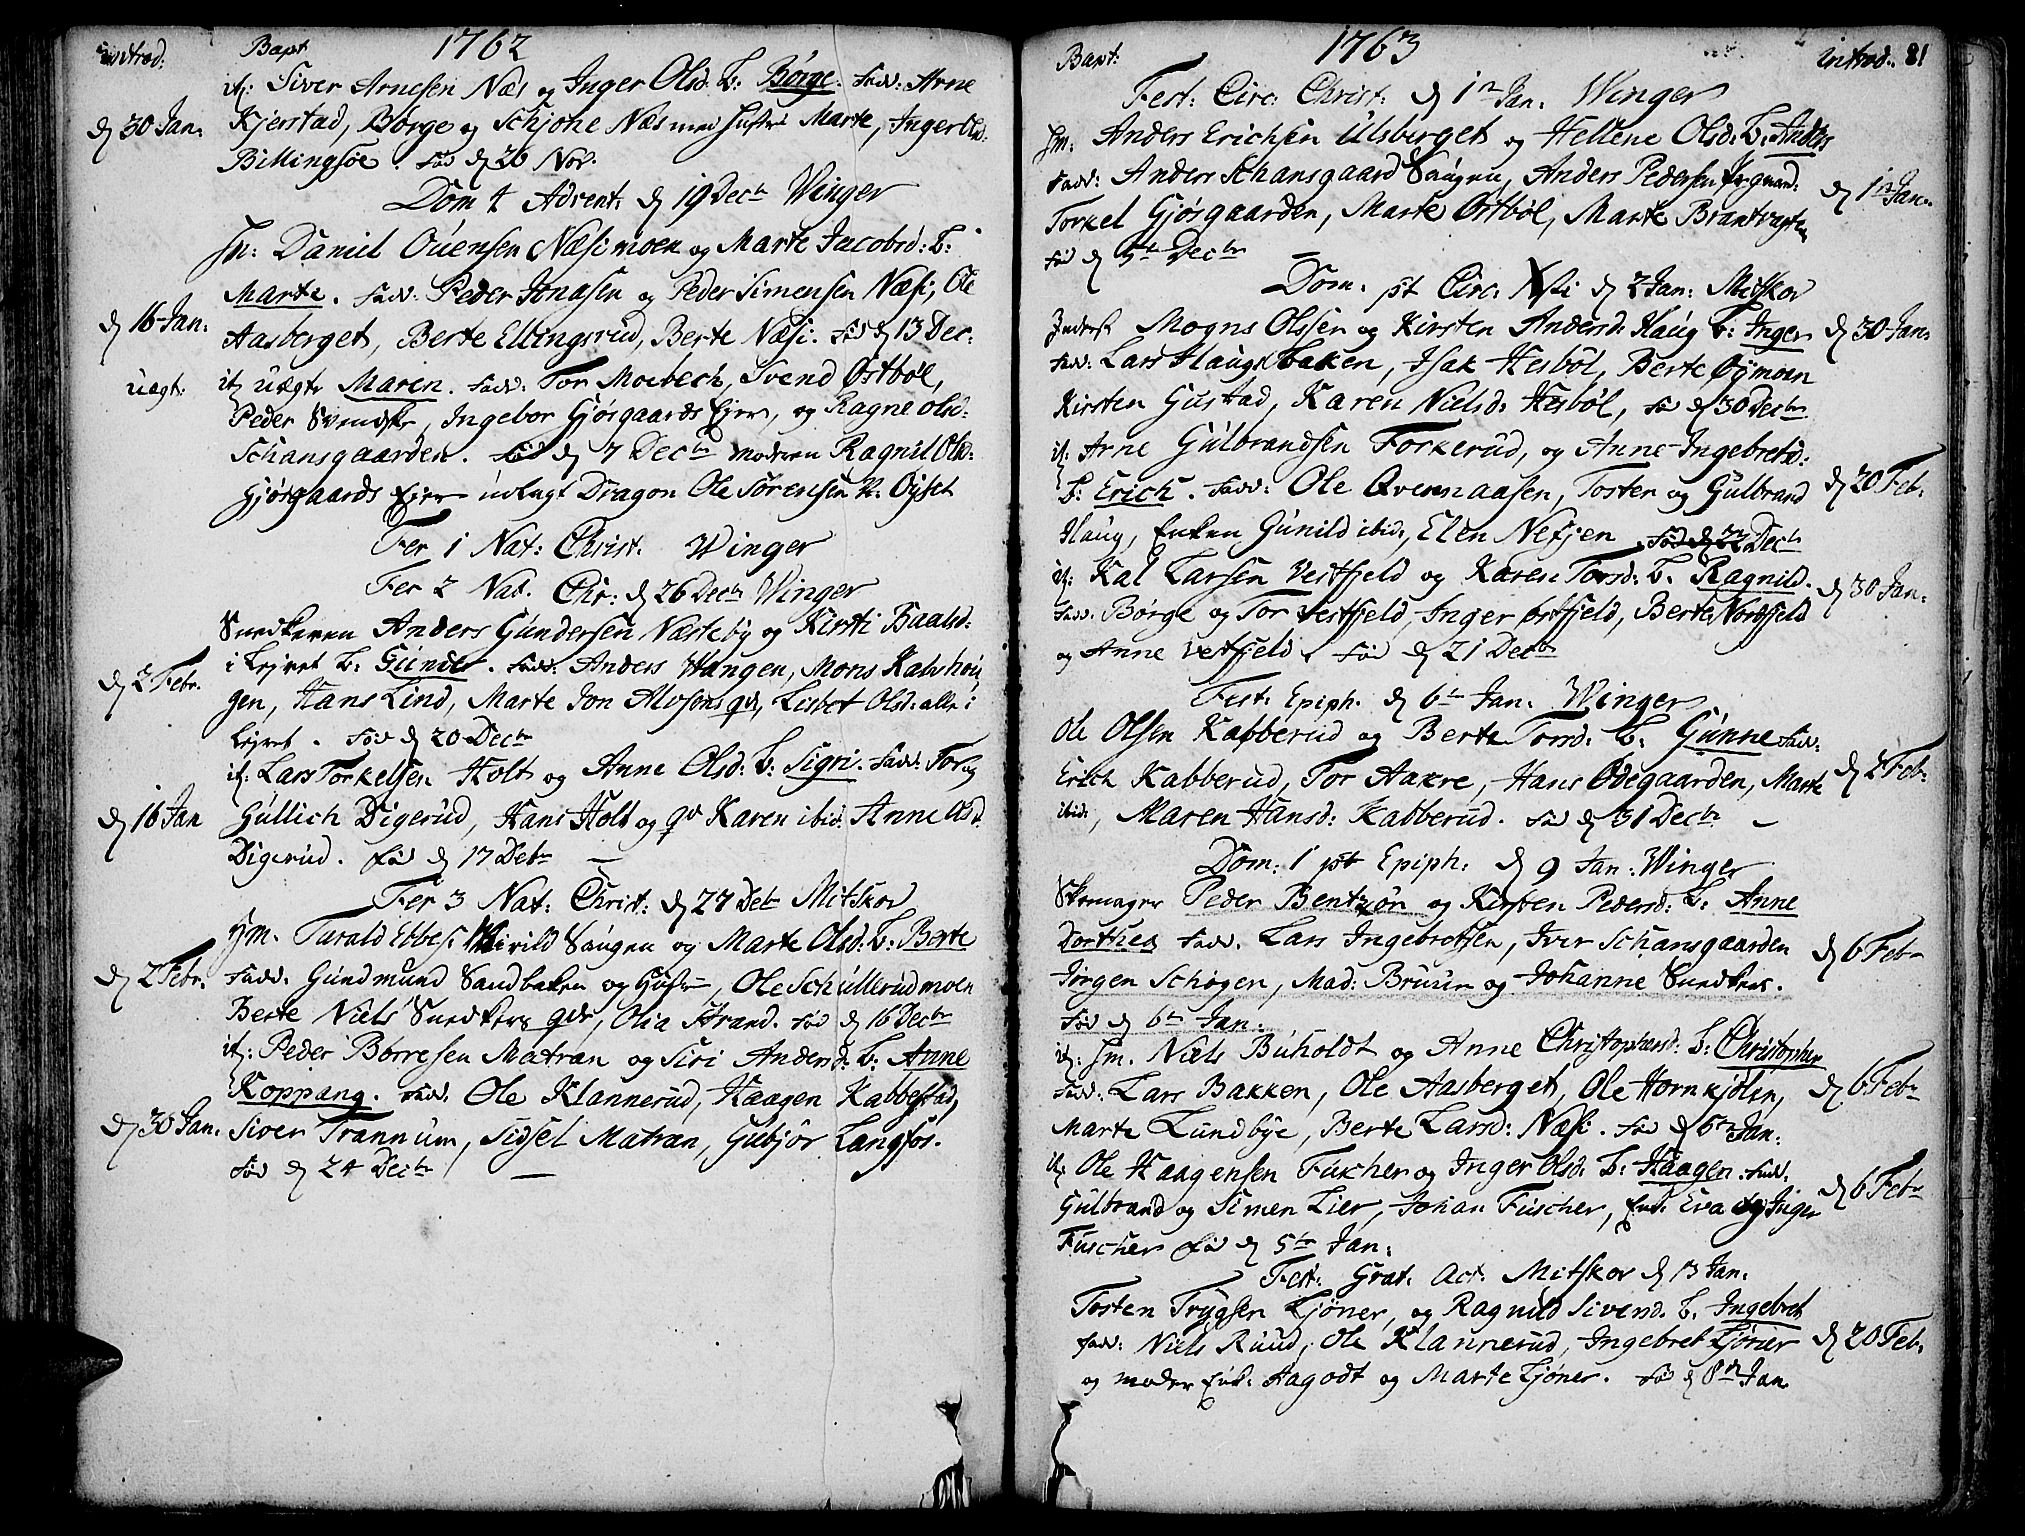 introd: Bapt 1762
it: Siver Arnesen Næs og Inger Olsd: b: Børge. fadd: Arne
d 30 Jan: Kjerstad, Børge og Schjone Næs med hustr: Marte, Inger Olsd:
Billingsøe. fød d 26 Nov.
Dom 4 Advent: d 19 Decbr Winger
Jn: Daniel Ouensen Næsimoen og Marte Jacobsd: b:
Marte. fadd: Peder Jonasen og Peder Simensen Næsi, Ole
d 16 Jan: Aasberget, Berte Ellingsrud, Berte Næsi. fød d 13 Dec:
uegt: it uægte Maren. fadd: Tor Moebech, Svend Østbøl,
Peder Svendsk, Ingebor Gjøsgaards Ejer, og Ragne olsd:
Schansgaarden. fød d 7 Decbr moderen Ragnil Olsd:
Gjøsgaards Ejer udlagt Dragon Ole Sørensen N: Øyset
Fer 1 Nat: Christ. Winger
Fer 2 Nat. Chr: d 26 Decbr Winger
Snedkeren Anders Gundersen Næsteby og Kirsti Baalsd:
i Lejret b: Gunder. fadd: Anders Vangen, Mons Kalshou
d 2 Febr. gen, Hans Lind, Marte Jon Alvsens qv, Lisbet Olsd: alle i
Lejret. fød d 20 Decbr
it: Lars Torkelsen Holt og Anne Olsd: b: Sigri. fadd: Tor og
d 16 Jan Gullich Digerud, Hans Holt og qv Karen ibid. Anne Olsd.
Digerud. fød d 17 Debr
Fer 3 Nat: Christ: d 27 Debr Mitskov
Jm. Tarald Ebbes: Saugen og Marte Olsd: b: Berte
d 2 Febr. fadd: Gundmund Sandbaken og Hustr, Ole Schullerudmoen
Berte Niels Snedkers qv, Olia Strand. fød d 16 Decbr
it: Peder Børresen Matran og Siri Andersd: b: Anne
Koppang. fadd: Ole Klannerud, Haagen Kabbestad,
d 30 Jan. Siver Trannum, Sidsel Matran, Gubjør Langfos.
fød d 24 Decbr
Bapt: 1763 introd. 81
Fest: Circ: Christ: d 1n Jan: Winger
Jm: Anders Erichsen Ulsberget og Hellene Olsd: b: Anders
fadd: Anders Schansgaard Saugen, Anders Pedersen d 1n Jan.
Torkel Gjøsgaarden, Marte Østbøl, Marte Brantvagten
fød d 5te Decbr
Dom. pt Circ: Xsti d 2 Jan: Mitskov
Mogns Olssen og Kirsten Andersd: Haug b: Inger d 30 Jan:
fadd: Lars Haugsbaken, Isak Hesbøl, Berte Øgmoen
Kirsten Gustad, Karen Nielsd: Hesbøl, fød d 30 Decbr
it: Arne Gulbrandsen Forkerud, og Anne Ingebretsd:
b: Erich. fadd: Ole Ovennaasen, Tosten og Gulbrand d 20 Feb:
Haug, Enken Gunild ibid, Elen Nefjen fød d 22 Decbr
it: Kal Larsen Vestfjeld og Karen Torsd: b: Ragnild.
fadd: Børge og Tor Vestfjeld, Inger østfjeld, Berte Nordfjeld d 30 Jan:
og Anne Vestfjeld. fød d 21 Decbr
Fest: Epiph. d 6te Jan: Winger
Ole Olsen Kabberud og Berte Torsd: b: Gunne fadd:
Erich Kabberud, Tor Aakre, Hans Ødegaarden, Marte d 2 Feb:
ibid:, Maren Hansd: Kabberud. fød d 31 Decbr
Dom: 1 pst Epiph: d 9 Jan: Winger
Skomager Peder Bentzøn og Kirsten Pedersd: b: Anne
Dorthea fadd. Lars Ingebretsen, Iver Schansgaarden d 6 Febr
Jørgen Schøgen, Mad: Bruun og Johanne Snedkers.
fød d 6te Jan:
it: Jm. Niels Buholdt og Anne Christophersd: b: Christopher
fadd: Lars Bakken, Ole Aasberget, Ole Hornkjølen, d 6 Febr
Marte Lundbye, Berte Larsd: Næsi. fød d 6te Jan:
it: Ole Haagensen Fuscher og Inger Olsd: b: Haagen. fadd.
Gulbrand og Simen Lier, Johan Fuscher, Enk: Eva og Inger d 6 Febr
Fuscher fød d 5te Jan:
Fest: Grat: Act: Mitskov d 13 Jan:
Tosten Trygsen Ljøner, og Ragnild Siversd. b. Ingebret
fadd: Niels Ruud, Ole Klannerud, Ingebret Ljøner d 20 Feb:
og moder Enk: Aagodt og Marte Ljøner. fød d 8de Jan